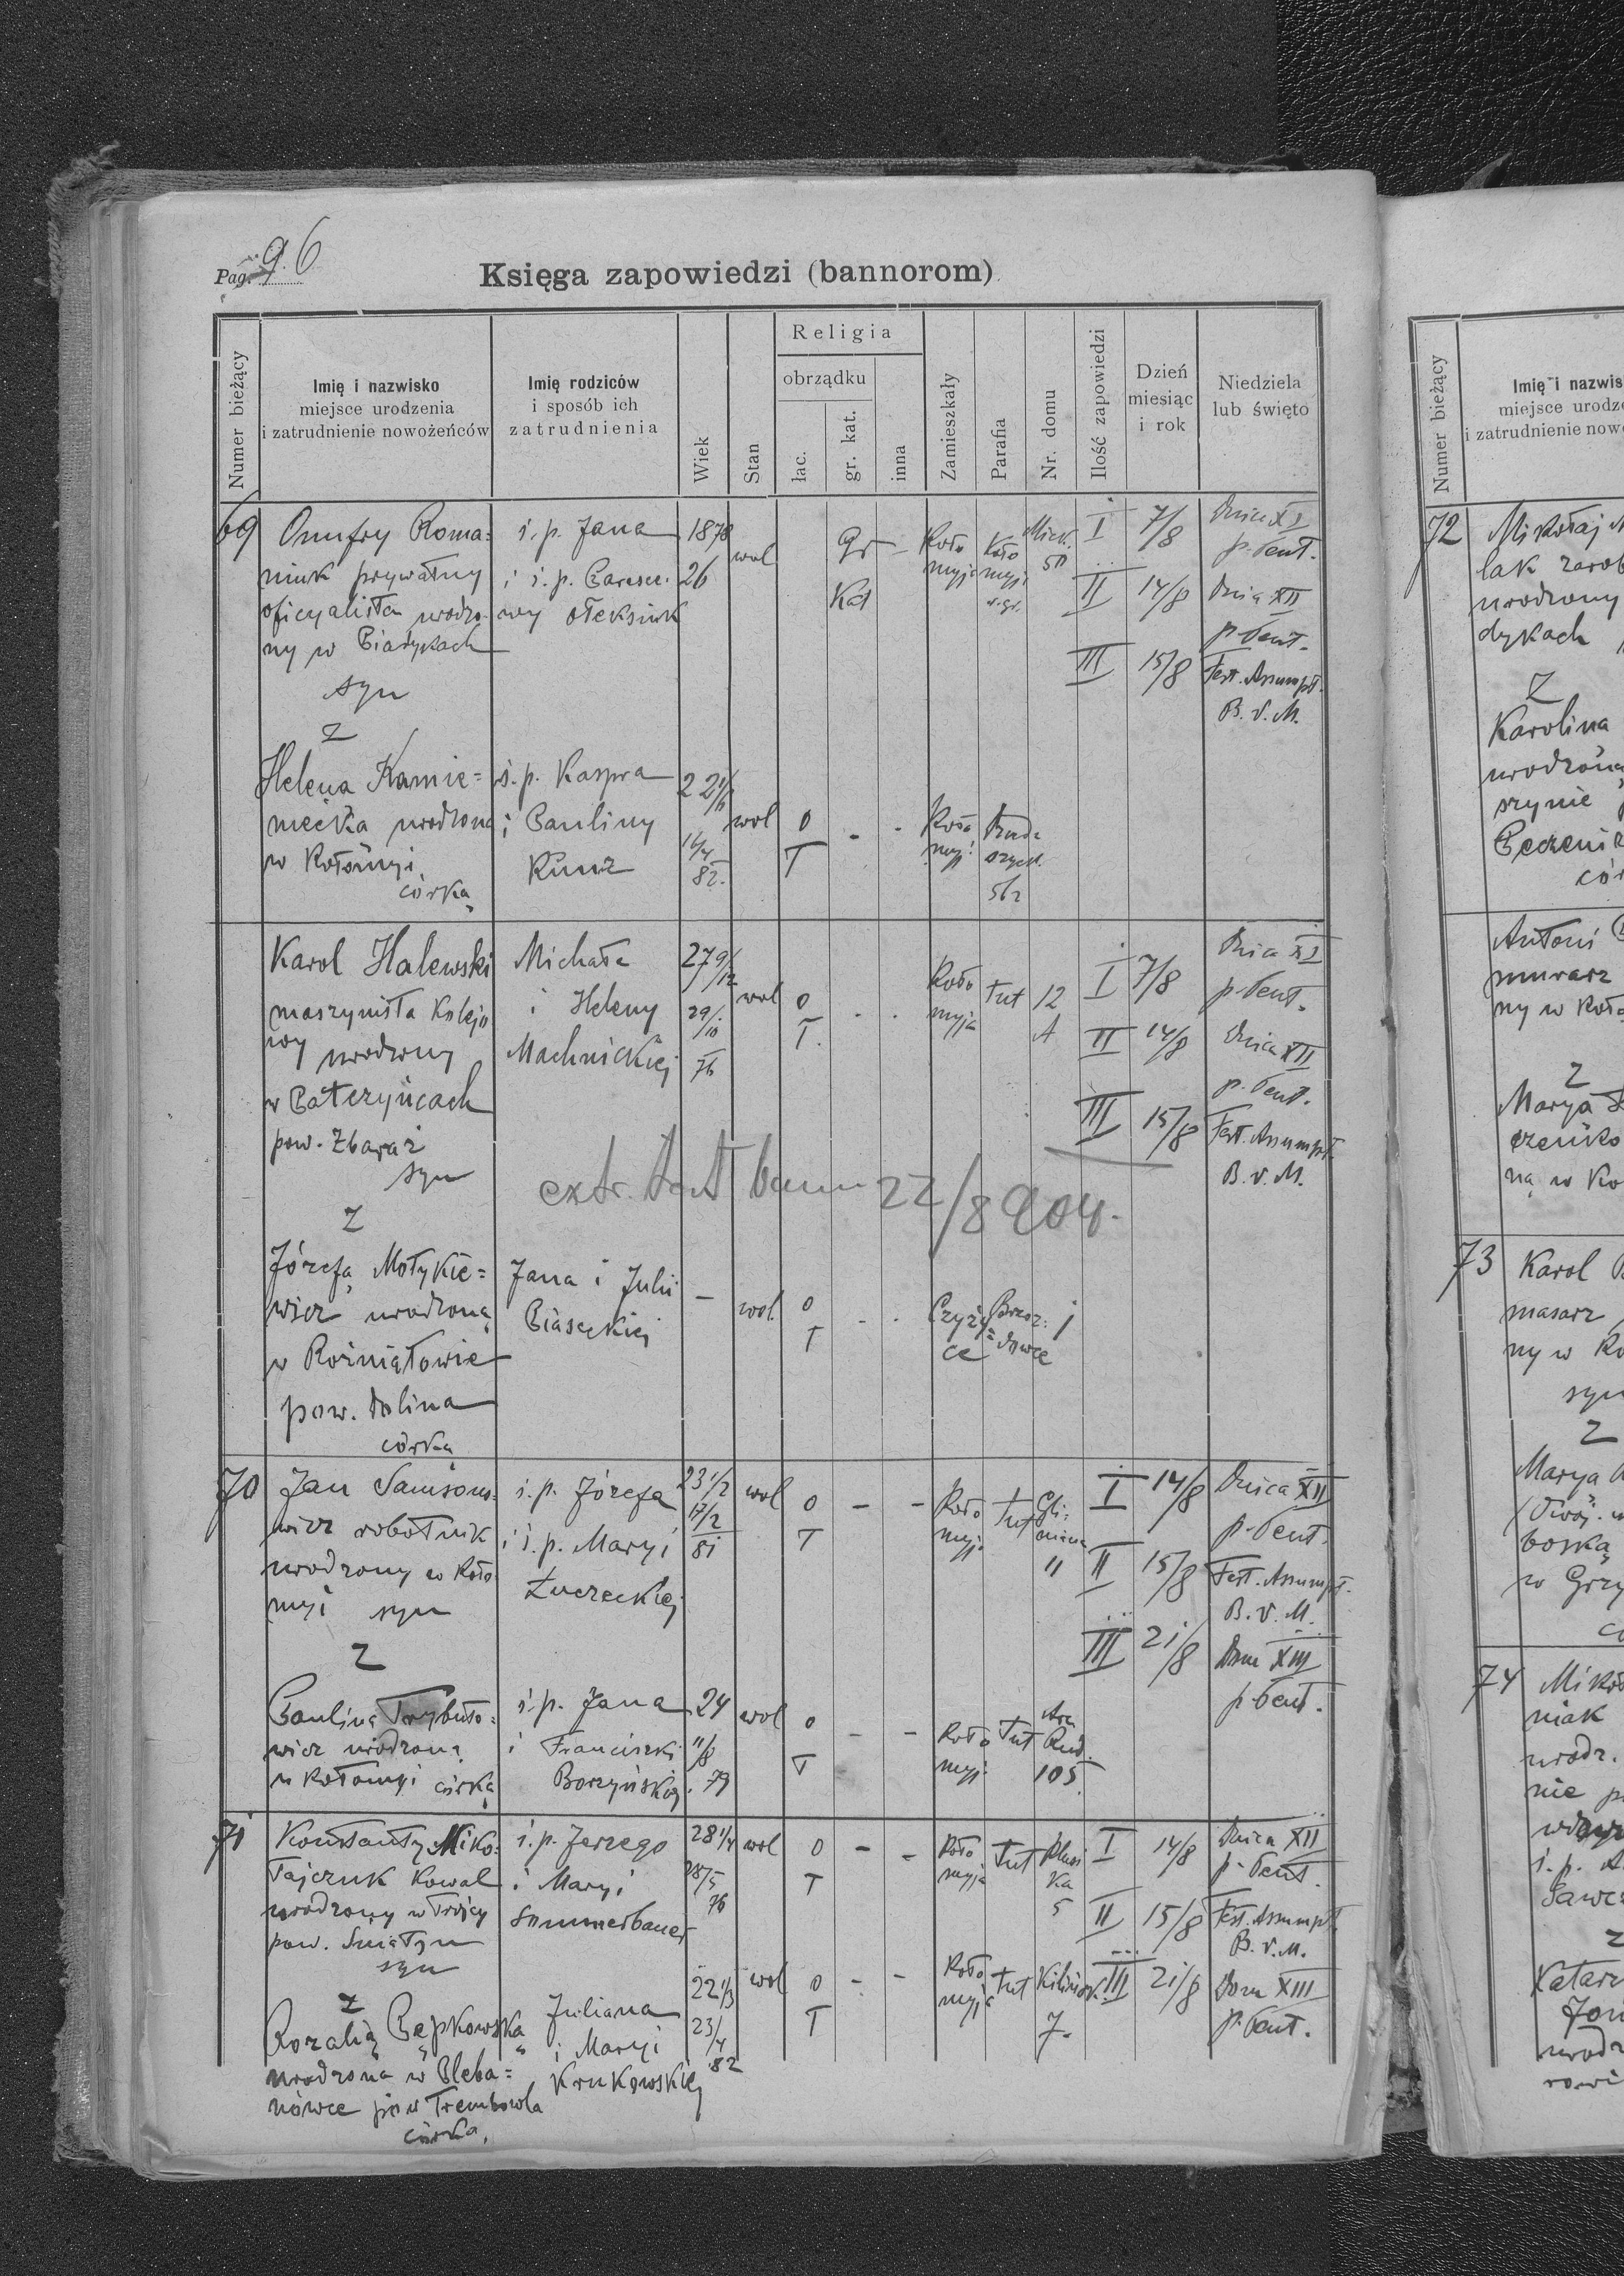 Pag. 96
Księga zapowiedzi (bannorom)
Numer bieżący
Imię i nazwisko
miejsce urodzenia
i zatrudnienie nowożeńców
Imię rodziców
i sposób ich
zatrudnienia
Wiek
Stan
Religia
obrządku
łac.
gr. kat.
inna
Zamieszkały
Parafia
Nr. domu
Ilość zapowiedzi
Dzień
miesiąc
i rok
Niedziela
lub święto
69
Onufry Roma=
niuk prywatny
oficyalista urodzo-
ny w Piadykach
syn
ś. p. Jana
i ś. p. Parasce.
wy Ołeksiuk
1878
26
wol
Gr
Kat
Koło
myja
Koło
myja
Mick.
I 7/8 Dnica XI
p. Pent.
II 14/8 Dnica XII
p. Pent.
III 15/8 Fest. Assumpt.
B. V. M.
z
Helena Kamie=
niecka urodzona
w Kołomyi
córką
ś. p. Kaspra
i Pauliny
Kunz
22
82.
wol
o
T
- -
Koło
myj.
562
Karol Halewski
maszynista kolejo
wy urodzony
w Patczyńcach
pow. Zbaraż
syn
Michała
i Heleny
Machnickiej
27 9/12
29/10
76
wol
o
T.
Koło
myja
tut
12
A
I 7/8 Dnica XI
p. Pent.
II 14/8 Dnica XII
p. Pent.
III 15/8 Fest. Assumpt.
B. V. M.
extr. bann 22/8 904.
z
Józefą Motykie=
wicz urodzoną
w Rożniatowie
pow. Dolina
córką
Jana i Julii
Piaseckiej
-
wol.
o
T
Czyży=
ce
Brzoz:
dowce
1
70
Jan Samsono-
wicz robotnik
urodzony w Koło
myi syn
ś. p. Józefa
i ś. p. Maryi
Łuczeckiej
23 1/2
17/2
81
wol
o
T
- -
Koło
myj.
tut
Gli:
niana
11
I 14/8 Dnica XII
p. Pent.
II 15/8 Fest. Assumpt.
B. V. M.
III 21/8 Dom XIII
p. Pent.
z
Pauliną Trybuło=
wicz urodzoną
w Kołomyi córką
ś. p. Jana
i Franciszki
Borzyńskiej.
24
11/8
79
wol
o
T
- -
Koło
myj.
tut
Rud.
105.
71
Konstanty Miko:
łajczuk kowal
urodzony w Trójcy
pow. Śniatyn
syn
ś. p. Jerzego
i Maryi
Sommerbauer
28 1/4
28/5
76
wol
o
T
- -
Koło
myja
tut
5
I 14/8 Dnica XII
p. Pent.
II 15/8 Fest. Assumpt.
B. V. M.
III 21/8 Dom XIII
p. Pent.
z
Rozalią Pępkowską
urodzoną w Pleba=
nówce pow Trembowla
córką.
Juliana
i Maryi
Krukowskiej
22 1/3
23/4
82
wol
o
T
- -
Koło
myja
tut
Kilińsk.
7.
Numer bieżący
Imię i nazwis
miejsce urodze
i zatrudnienie nowo
72
Mikołaj
lak zarob
urodzony
dykach
z
Karolina
urodzoną
szynie
Peczeniż
cór
Antoni
murarz
ny w Koło
z
Marya
czenko
ną w Ko
73
Karol
masarz
ny w Ko
syn
z
Marya
boską
w Grzy
74
Miko
niak
urodz.
nie p
ś. p.
Sawcz
z
Katarz
urodz
rowi